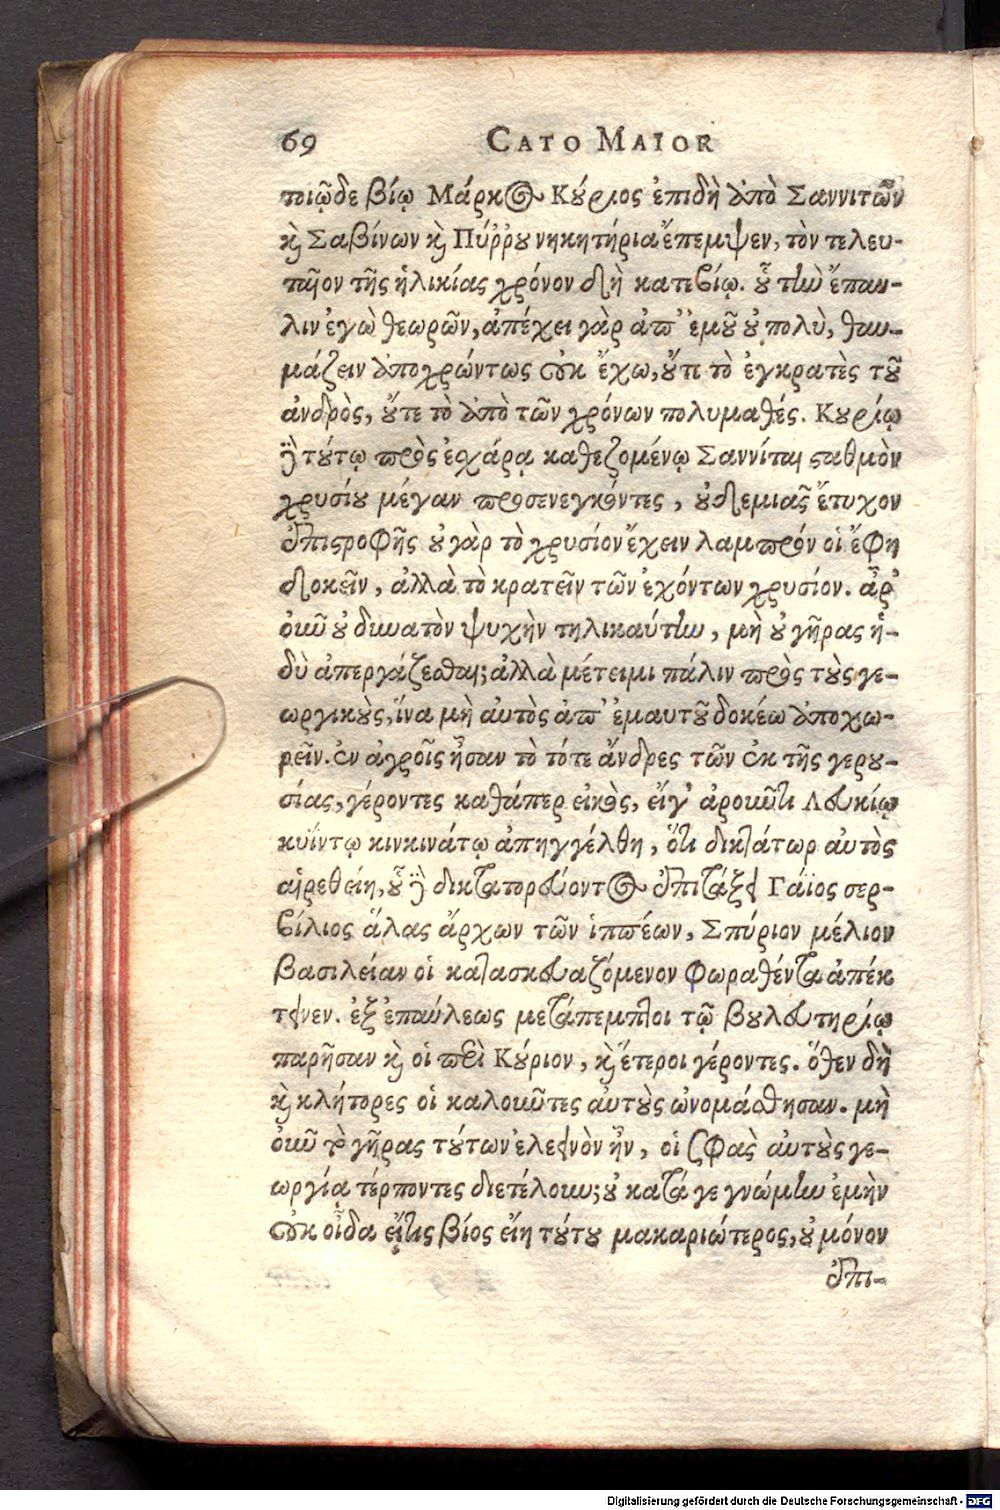 69 CATO MAIOR
τοιῷδε βίῳ Μάρκος Κύριος ἐπιδὴ ἀπὸ Σαννιτῶν
καὶ Σαβίνων καὶ Πύῤῥου νηκητήρια ἔπεμψεν, τὸν τελευ-
ταῖον τῆς ἡλικίας χρόνον δὴ κατεβίῳ. οὗ τὴν ἔπαυ-
λιν ἐγὼ θεωρῶν, ἀπέχει γὰρ ἀπ' ἐμοῦ οὐ πολὺ, θαυ-
μάζειν ἀποχρώντως οὐκ ἔχω, οὔτι τὸ ἐγκρατὲς τοῦ
ἀνδρὸς, οὔτε τὸ ἀπὸ τῶν χρόνων πολυμαθές. Κυρίῳ
γὰρ τούτῳ πρὸς ἐσχάρᾳ καθεζομένῳ Σαννίται σταθμὸν
χρυσίου μέγαν προσενεγκόντες, οὐδεμιᾶς ἔτυχον
ἐπιστροφῆς οὐ γὰρ τὸ χρυσίον ἔχειν λαμπρόν οἱ ἔφη
δοκεῖν, ἀλλὰ τὸ κρατεῖν τῶν ἐχόντων χρυσίον. ἆρ'
οὖν οὐ δυνατὸν ψυχὴν τηλικαύτην, μὴ οὐ γῆρας ἡ-
δὺ ἀπεργάζεσθαι; ἀλλὰ μέτειμι πάλιν πρὸς τοὺς γε-
ωργικοὺς, ἵνα μὴ αὐτὸς ἀπ' ἐμαυτοῦ δοκέω ἀποχω-
ρεῖν. ἐν ἀγροῖς ἦσαν τὸ τότε ἄνδρες τῶν ἐκ τῆς γερου-
σίας, γέροντες καθάπερ εἰκὸς, εἴγ' ἀροῦντι Λευκίῳ
κυΐντῳ κινκινάτῳ ἀπηγγέλθη, ὅτι δικτάτωρ αὐτὸς
αἱρεθείη, οὗ γὰρ δικτατορεύοντος ἐπιτάξει Γάϊος σερ-
βίλιος ἅλας ἄρχων τῶν ἱππέων, Σπύριον μέλιον
βασιλείαν οἱ κατασκευαζόμενον φωραθέντα ἀπέκ
τεινεν. ἐξ ἐπαύλεως μετάπεμπτοι τῷ βουλευτηρίῳ
παρῆσαν καὶ οἱ περὶ Κύριον, καὶ ἕτεροι γέροντες. ὅθεν δὴ
καὶ κλήτορες οἱ καλοῦντες αὐτοὺς ὠνομάσθησαν. μὴ
οὖν τὸ γῆρας τούτων ἐλεεινὸν ἦν, οἱ σφᾶς αὐτοὺς γε-
ωργίᾳ τέρποντες διετέλουν; οὐ κατά γε γνώμην ἐμὴν
οὐκ οἶδα εἴτις βίος εἴη τούτου μακαριώτερος, οὐ μόνον
ἐπι-
Digitalisierung gefördert durch die Deutsche Forschungsgemeinschaft - DFG